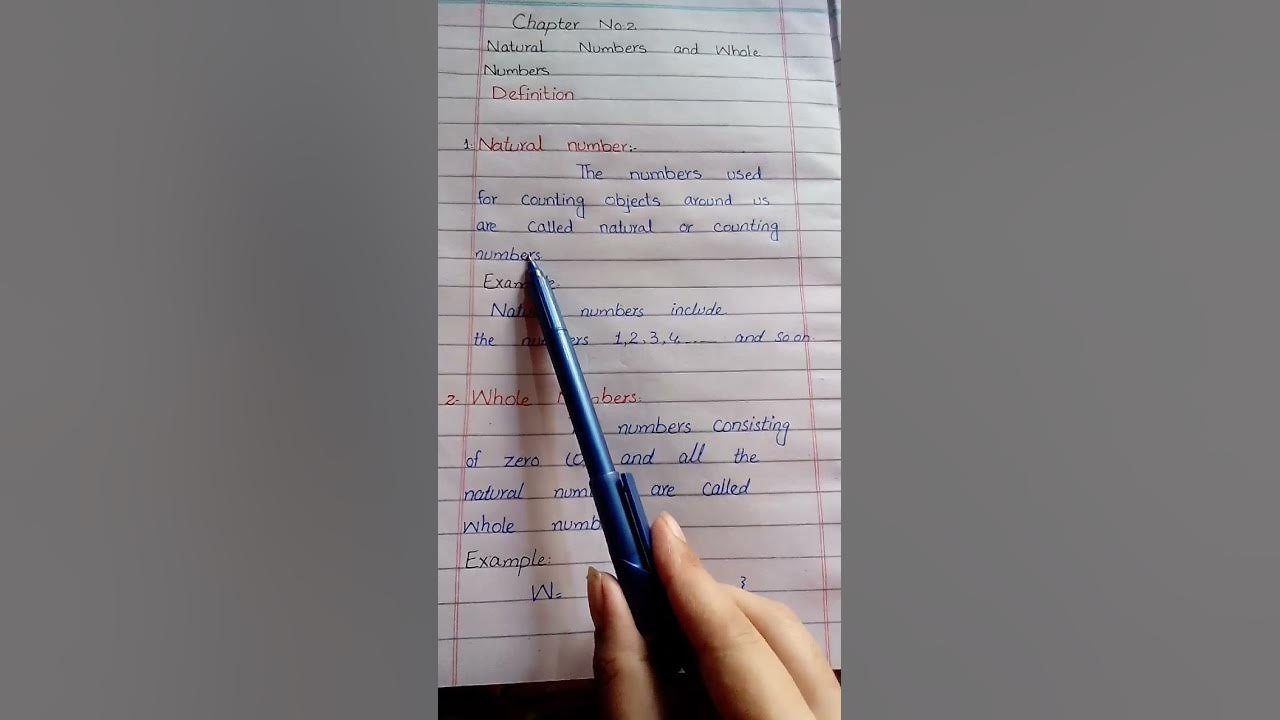 Chapter No.2
Natural Numbers and Whole
Numbers
Definition
1. Natural number:-
The numbers used
for counting objects around us
are called natural or counting
numbers
Example:
numbers include
the 1,2,3,4,...... and so on.
2- Whole
numbers consisting
of zero and all the
natural are called
Whole
Example:
W= }